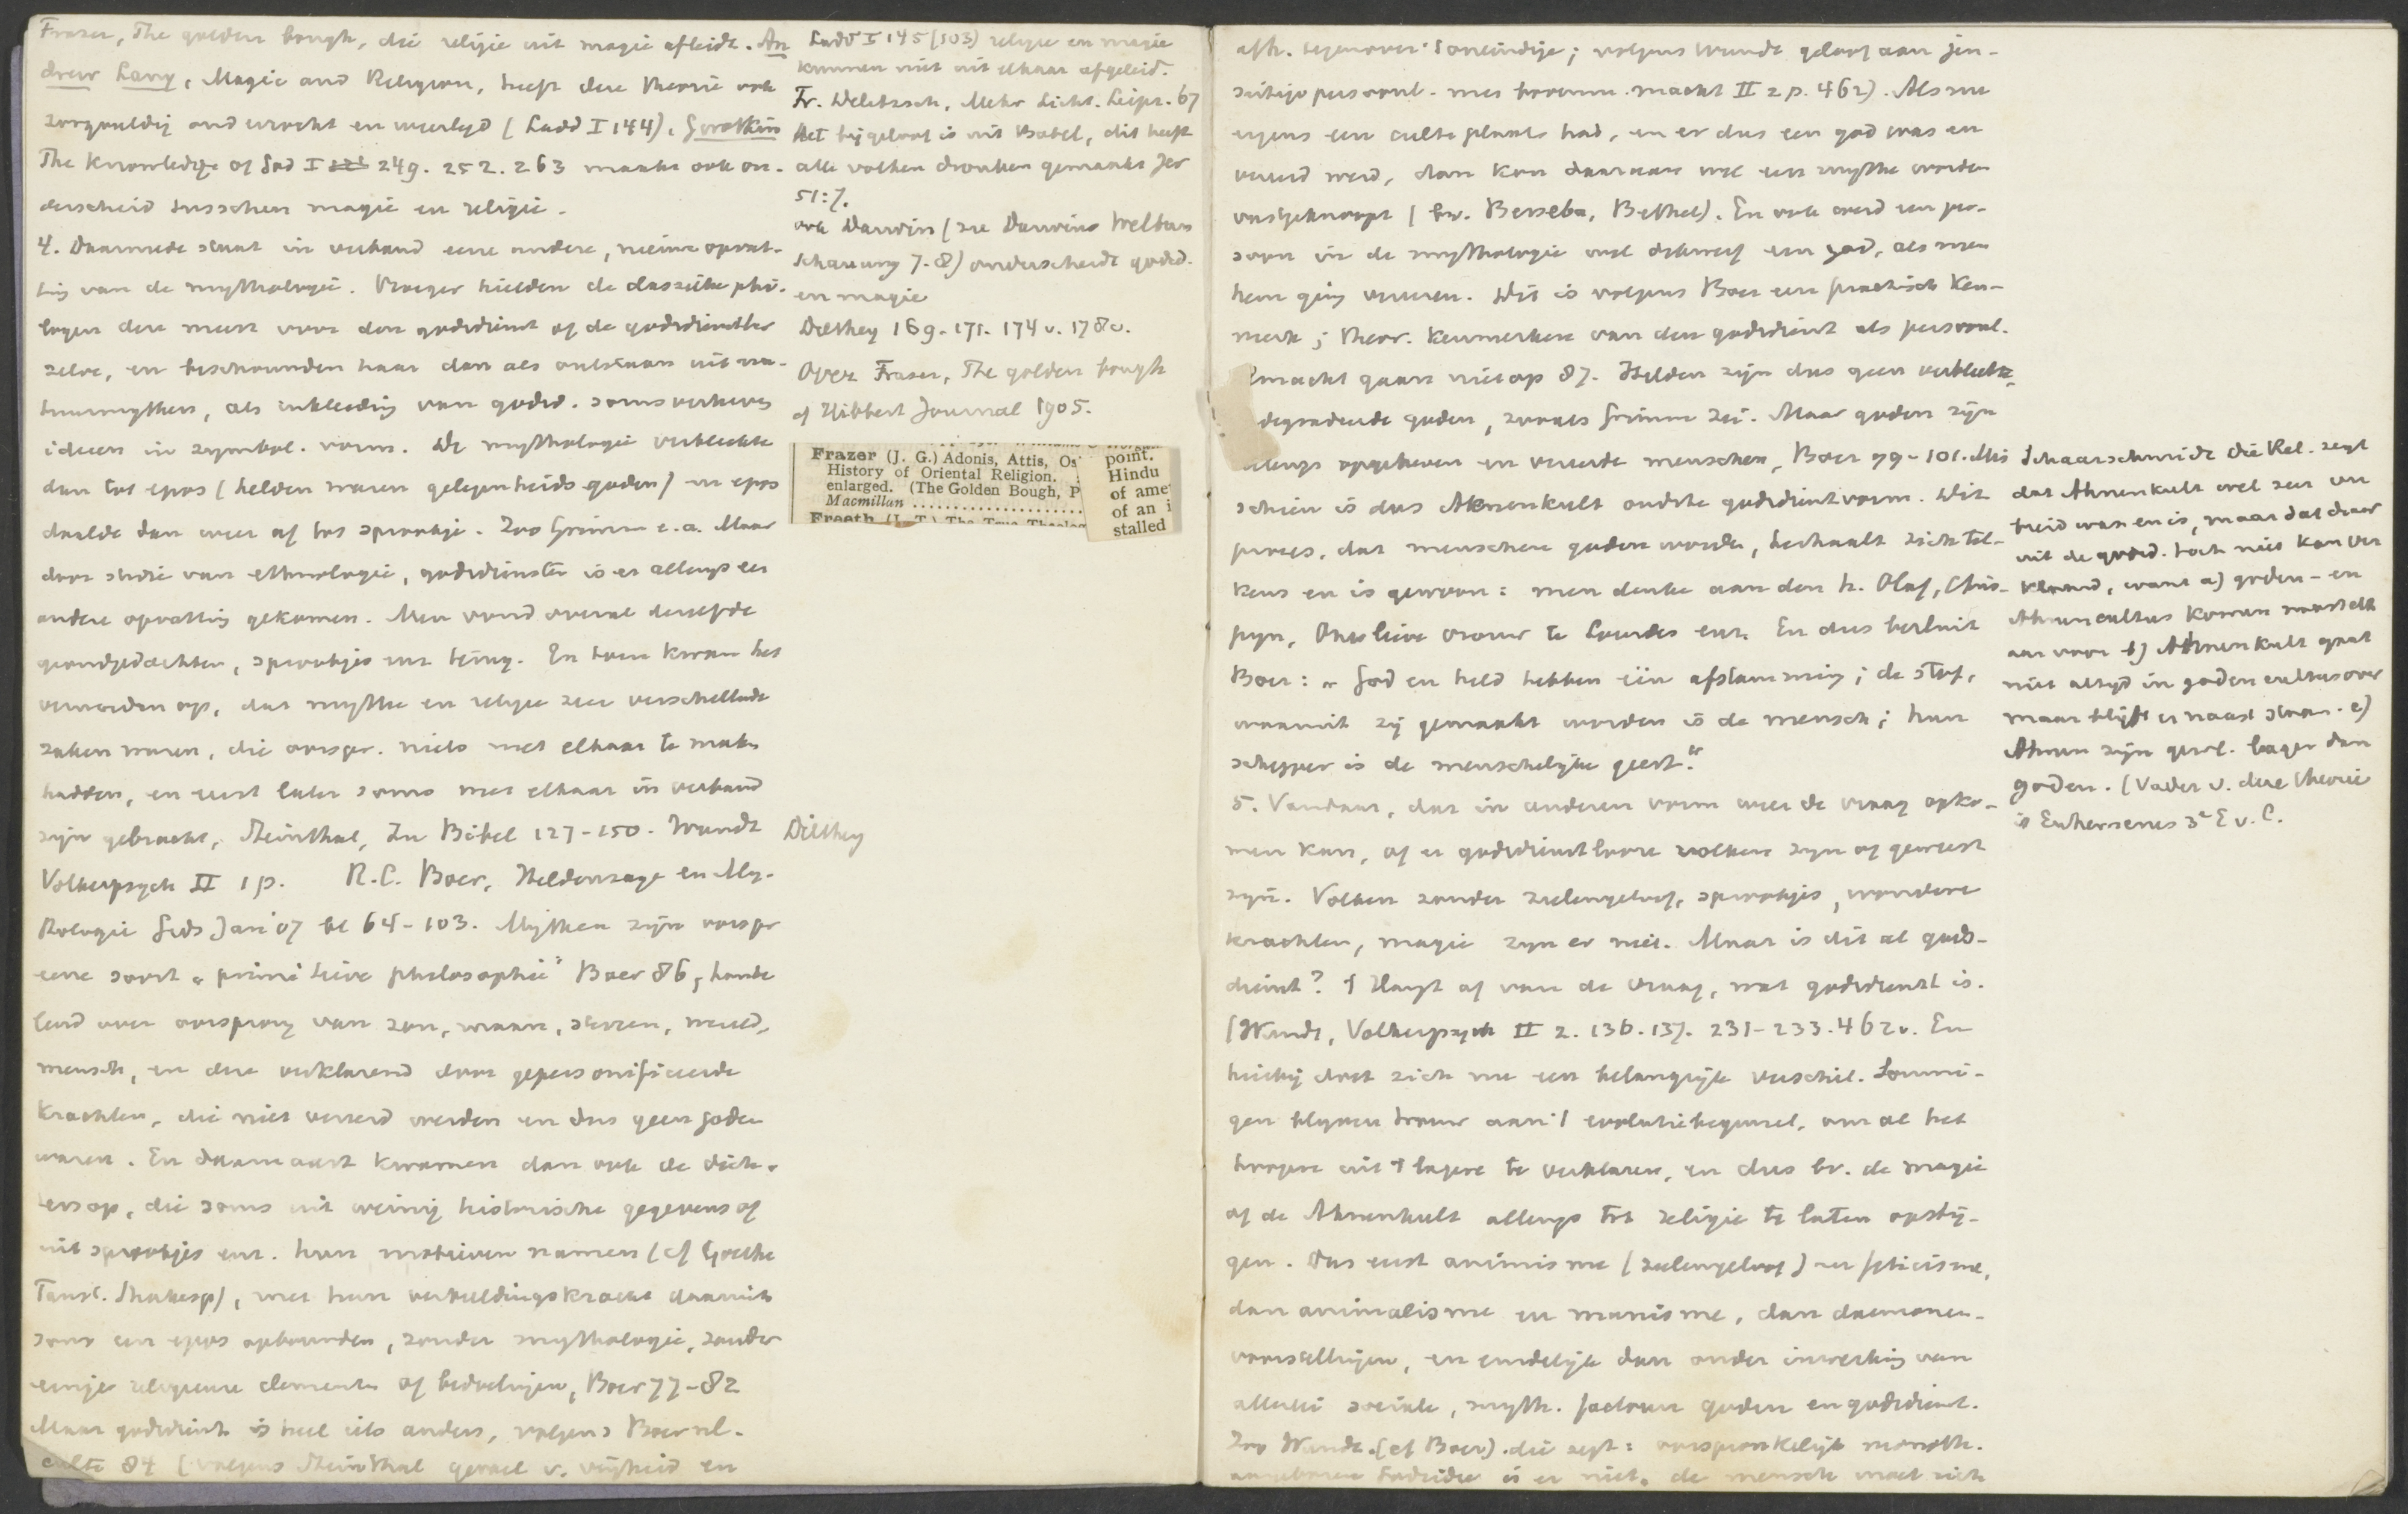 Frazer, The golden bough, die religie uit magie afleidt. An
drew Lang, Magic and Religion, heeft deze theorie ook
zorgvuldig onderzocht en weerlegd (Ladd I 144). Gwatkin
The Knowledge of God I 249. 252. 263 maakt ook on-
derscheid tusschen magie en religie.
4. Daarmede staat in verband eene andere, nieuwe opvat-
ting van de mythologie. Vroeger hielden de classieke philo-
logen deze meest voor den godsdienst of de godsdienstleer
zelve, en beschouwden haar dan als ontstaan uit na-
tuurmythen, als inkleeding van godsd. soms verheven
ideeen in symbol. vorm. De mythologie verbleekte
dan tot epos (helden waren gelegenheids goden) en epos
daalde dan weer af tot sprookje. Zoo Grimm e.a. Maar
door studie van ethnologie, godsdiensten is er allengs een
andere opvatting gekomen. Men vond overal dezelfde
grondgedachten, sprookjes enz. terug. En toen kwam het
vermoeden op, dat mythe en religie zeer verschillende
zaken waren, die oorspr. niets met elkaar te maken
hadden, en eerst later soms met elkaar in verband
zijn gebracht, Steinthal, Zu Bibel 127-150. Wundt
Volkerpsych II 1 p. R.C. Boer, Heldensage en My-
thologie Gids Jan '07 bl 64-103. Mythen zijn oorspr
eene soort "primitieve philosophie" Boer 86, hande
lend over oorsprong van zon, maan, sterren, wereld,
mensch, en deze verklarend door gepersonifieerde
krachten, die niet vereerd werden en dus geen goden
waren. En daarnaast kwamen dan ook de dich-
ters op, die soms uit weinig historische gegevens of
uit sprookjes enz. hun motieven namen (cf Goethe
Faust. Shakesp), met hun verbeeldingskracht daaruit
soms een epos opbouwden, zonder mythologie, zonder
eenige religieuze elementen of bedoelingen, Boer 77-82
Maar godsdienst is heel iets anders, volgens Boer nl.
culte 84 (volgens Steinthal gevoel v. vrijheid en
Ladd I 145 (103) religie en magie
kunnen niet uit elkaar afgeleid.
Fr. Delitzsch, Mehr Licht. Leipz. 67
Het bijgeloof is uit Babel, dit heeft
alle volken dronken gemaakt Jer
51:7.
ook Darwin (zie Darwins Weltan
schauung 7-8) onderscheidt godsd.
en magie
Dilthey 169-171. 174 v. 178 v.
Over Frazer, The golden bough
cf Hibbert Journal 1905.
Frazer (J. G.) Adonis, Attis, Os
History of Oriental Religion.
enlarged. (The Golden Bough, P
Macmillan
Freeth (L. T.) The True Theolog
point.
Hindu
of ame
of an i
stalled
Dilthey
afh. tegenover 't oneindige; volgens Wundt geloof aan jen-
seitige persoonl. mes bovenm. macht II 2 p. 462). Als nu
ergens een culte plaats had, en er dus een god was en
vereerd werd, dan kon daaraan wel een mythe worden
vastgeknoopt (bv. Berseba, Bethel). En ook werd een per-
soon in de mythologie wel dikwerf een god, als men
hem ging vereeren. Dit is volgens Boer een practisch ken-
merk; theor. kenmerken van den godsdienst als persoonl.
macht gaan niet op 87. Helden zijn dus geen verbleekte,
degradeerde goden, zooals Grimm zei. Maar goden zijn
allengs opgeheven en vereerde menschen, Boer 99-101. Mis
schien is dus Ahnenkult oudste godsdienstvorm. Dit
proces, dat menschen goden worden, herhaalt zich tel-
kens en is gewoon: men denke aan den h. Olaf, Chris-
pyn, Onze lieve vrouw te Lourdes enz. En dus besluit
Boer: "God en held hebben één afstamming; de stof,
waaruit zij gemaakt worden is de mensch; hun
schepper is de menschelijke geest."
5. Vandaar, dat in anderen vorm weer de vraag opko-
men kan, of er godsdienstlooze volken zijn of geweest
zijn. Volken zonder zielengeloof, sprookjes, wondere
krachten, magie zijn er niet. Maar is dit al gods-
dienst? 't Hangt af van de vraag, wat godsdienst is.
(Wundt, Volkerpsych II 2. 136. 137. 231-233. 462 v. En
hierbij doet zich nu een belangrijk verschil. Sommi-
gen blijven trouw aan 't evolutiebeginsel, om al het
hoogere uit 't lagere te verklaren, en dus bv. de magie
of de Ahnenkult allengs tot religie te laten opstij-
gen. Dus eerst animisme (zielengeloof) en feticisme,
dan animalisme en manisme, dan daemonen-
voorstellingen, en eindelijk dan onder inwerking van
allerlei sociale, myth. factoren goden en godsdienst.
Zoo Wundt. (cf Boer). die zegt: oorspronkelijk monoth.
aangeboren Godsidee is er niet, de mensch moet zich
Schaarschmidt die Rel. zegt
dat Ahnenkult wel zeer ver
breid was en is, maar dat daar
uit de godsd. toch niet kan ver
klaard, want a) goden- en
Ahnencultus komen naast elk
aar voor b) Ahnenkult gaat
niet altijd in godencultus over
maar blijft er naast staan. c)
Ahnen zijn gewl. lager dan
goden. (Vader v. deze theorie
is Euhemerus 3e E v. C.